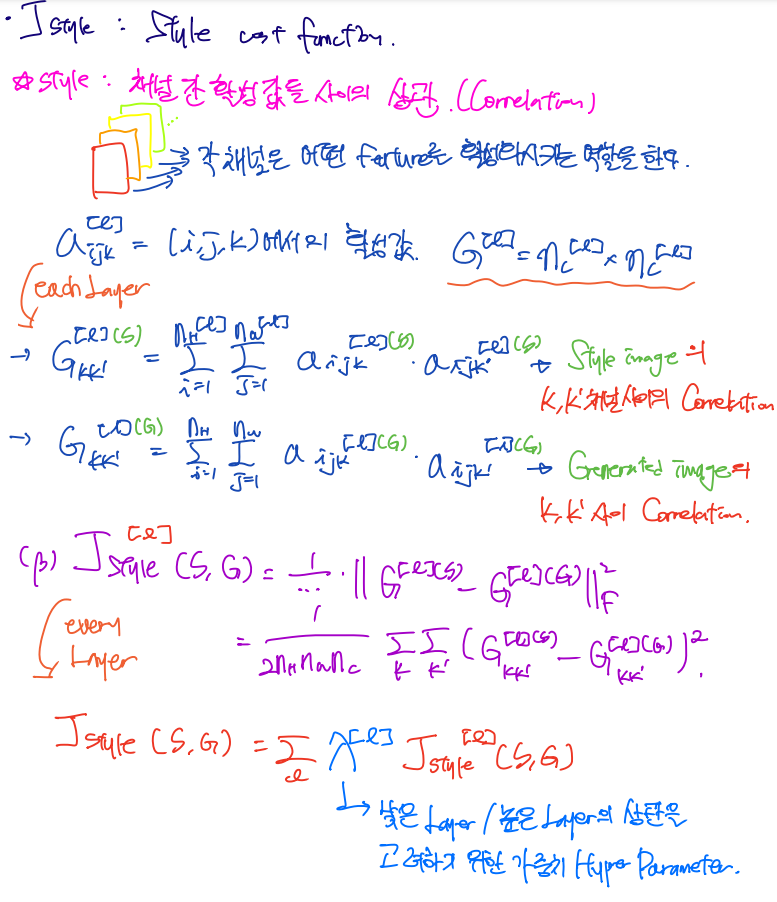 · J style : Style cost function.
☆ style : 채널 간 활성값들 사이의 상관. (Correlation)
각 채널은 어떤 Feature를 활성화시키는 역할을 한다.
a_ijk^[l] = (i, j, k)에서의 활성값. G^[l] = n_c^[l] × n_c^[l]
each Layer
→ G_kk'^[l](S) = Σ_{i=1}^{n_H^[l]} Σ_{j=1}^{n_W^[l]} a_ijk^[l](S) · a_ijk'^[l](S) → Style image의
k, k' 채널 사이의 Correlation
→ G_kk'^[l](G) = Σ_{i=1}^{n_H} Σ_{j=1}^{n_W} a_ijk^[l](G) · a_ijk'^[l](G) → Generated image의
k, k' 사이 Correlation.
(β) J_style^[l] (S, G) = 1/... · || G^[l](S) - G^[l](G) ||_F^2
every
Layer
= 1/(2 n_H n_W n_C) Σ_k Σ_k' (G_kk'^[l](S) - G_kk'^[l](G))^2.
J_style (S, G) = Σ_l λ^[l] J_style^[l] (S, G)
낮은 Layer / 높은 Layer의 상관을
고려하기 위한 가중치 Hyper Parameter.